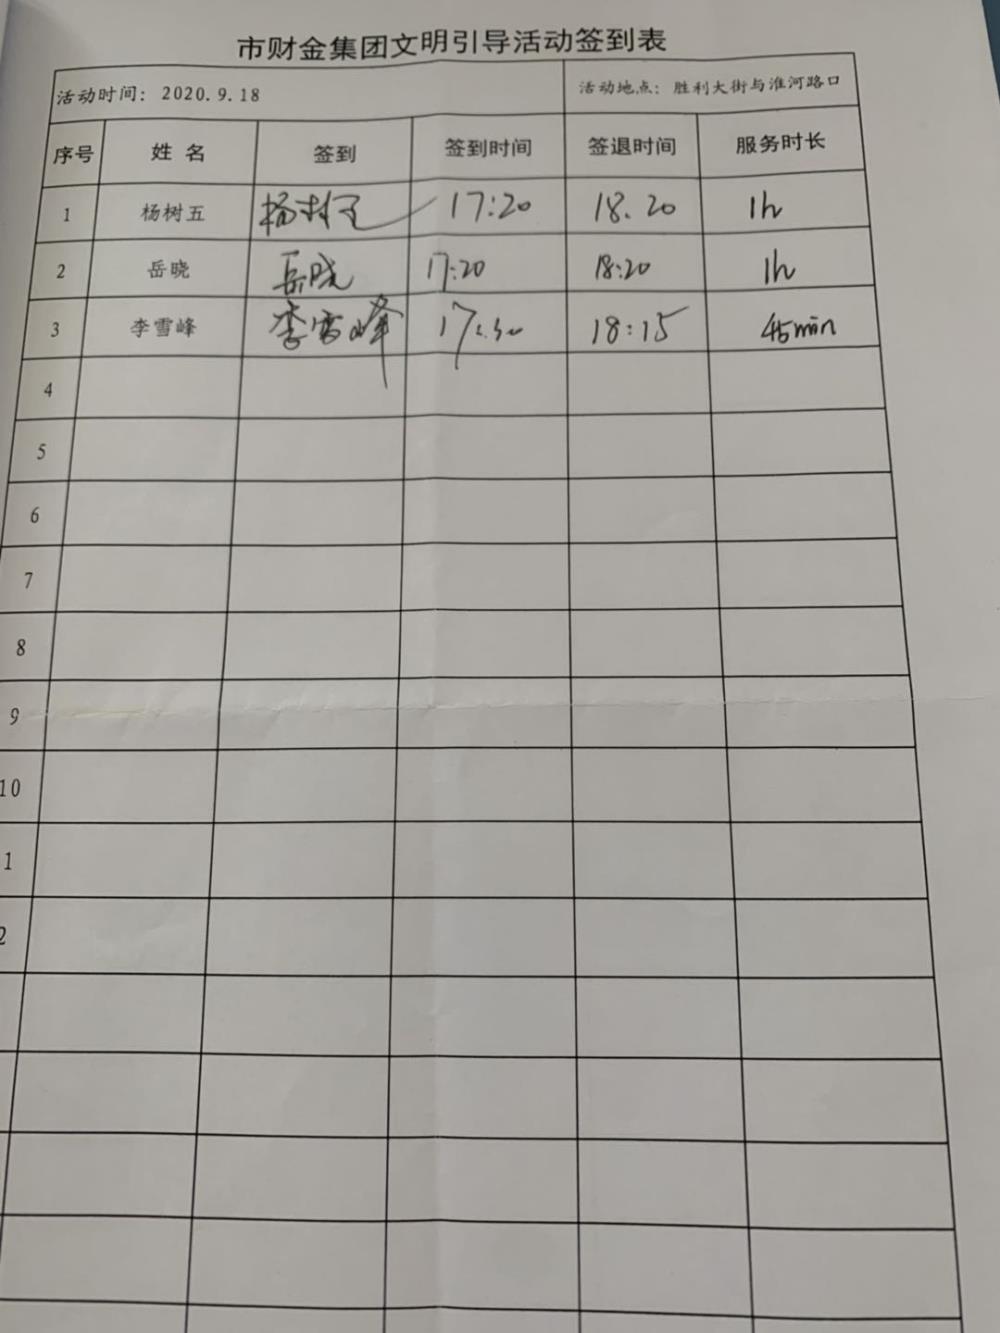 市财金集团文明引导活动签到表
活动时间：2020.9.18 活动地点：胜利大街与淮河路口
序号 姓名 签到 签到时间 签退时间 服务时长
1 杨树五 杨树五 17:20 18.20 1h
2 岳晓 岳晓 17:20 18:20 1h
3 李雪峰 李雪峰 17:30 18:15 45min
4
5
6
7
8
9
10
1
2